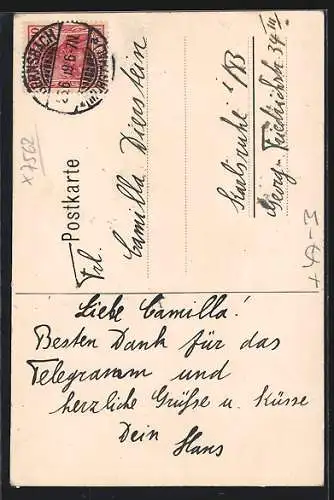 Postkarte
Frl.
Camilla Diverstein
Karlsruhe i/B
Georg-Friedrichstr. 34 III
Liebe Camilla!
Besten Dank für das
Telegramm und
herzliche Grüße u. Küsse
Dein Hans
x7562